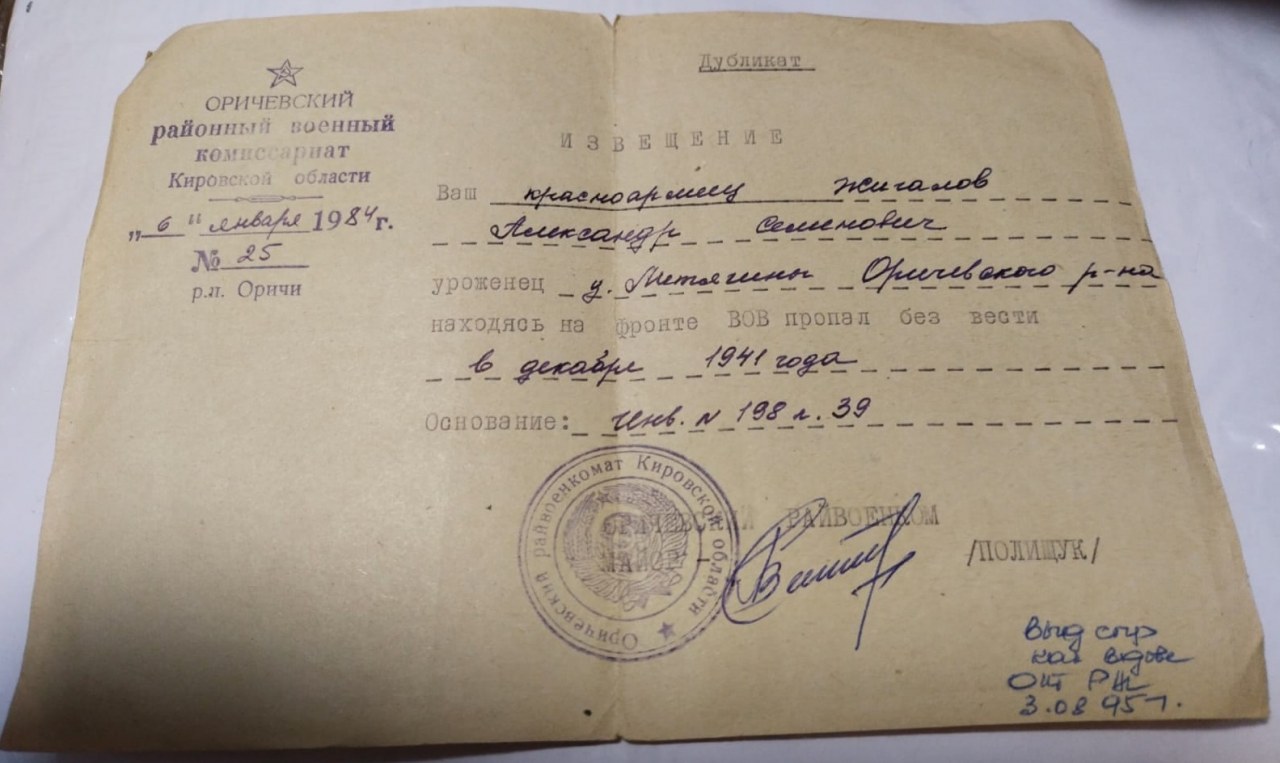 ОРИЧЕВСКИЙ
районный военный
комиссариат
Кировской области
„6" января 1984 г.
№ 25
р.п. Оричи
Дубликат
ИЗВЕЩЕНИЕ
Ваш красноармеец Жигалов
Александр Семенович
уроженец д. Митягины Оричевского р-на
находясь на фронте ВОВ пропал без вести
в декабре 1941 года
Основание: Инв. № 198 л. 39
ОРИЧЕВСКИЙ РАЙВОЕНКОМ
МАЙОР -
/ПОЛИЩУК/
Оричевский райвоенкомат Кировской области
3.08 95 г.